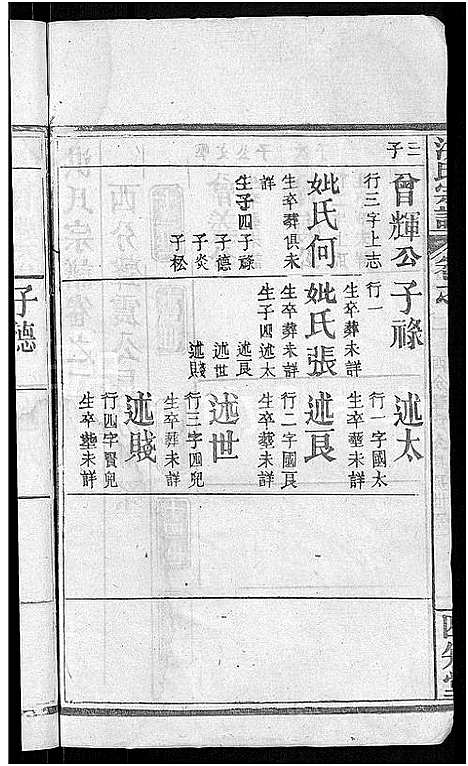 氏宗譜
曾輝公
行三字上志
妣氏何
生卒葬俱未
詳
生子四子祿
子德
子炎
子松
子祿
行一
生卒葬未詳
妣氏張
生卒葬未詳
生子四述太
述艮
述世
述賤
述太
行一字國太
生卒塟未詳
述艮
行二字國艮
生卒塟未詳
述世
行三字四兒
生卒塟未詳
述賤
行四字賢兒
生卒塟未詳
子德